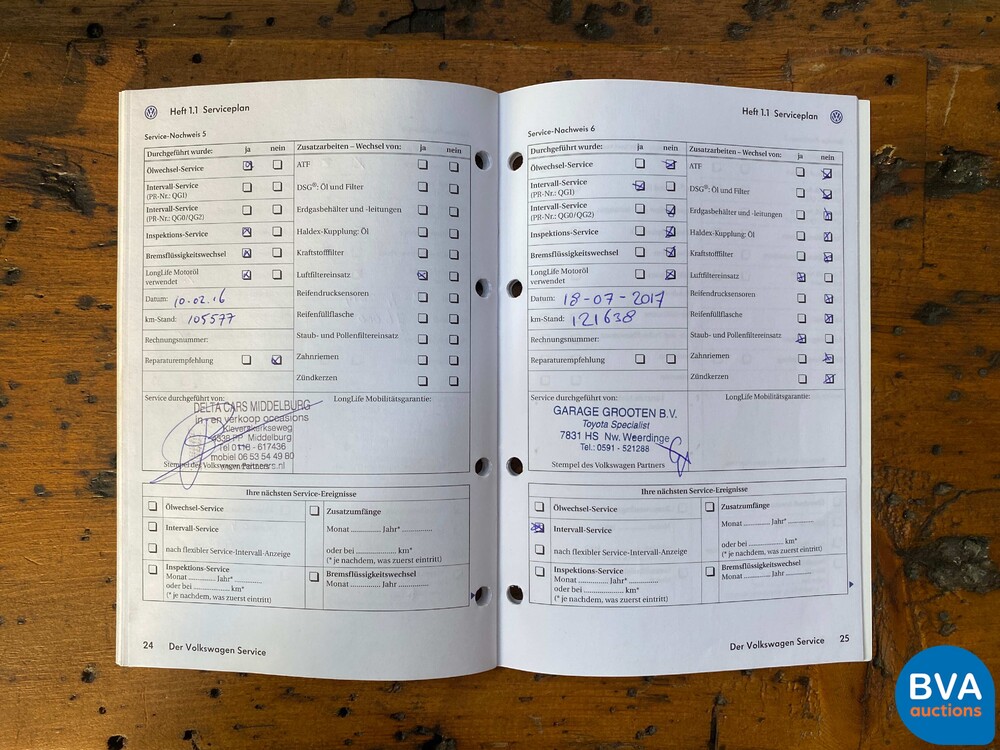 Heft 1.1 Serviceplan
Service-Nachweis 5
Durchgeführt wurde: ja nein
Ölwechsel-Service
Intervall-Service
(PR-Nr.: QG1)
Intervall-Service
(PR-Nr.: QG0/QG2)
Inspektions-Service
Bremsflüssigkeitswechsel
LongLife Motoröl
verwendet
Datum: 10-02.16
km-Stand: 105577
Rechnungsnummer:
Reparaturempfehlung
Zusatzarbeiten – Wechsel von: ja nein
ATF
DSG®: Öl und Filter
Erdgasbehälter und -leitungen
Haldex-Kupplung: Öl
Kraftstofffilter
Luftfiltereinsatz
Reifendrucksensoren
Reifenfüllflasche
Staub- und Pollenfiltereinsatz
Zahnriemen
Zündkerzen
Service durchgeführt von:
DELTA CARS MIDDELBURG
in- en verkoop occasions
Kleverskerkseweg
4338 PP Middelburg
Tel 0118 - 617436
mobiel 06 53 54 49 80
Stempel des Volkswagen Partners
LongLife Mobilitätsgarantie:
Ihre nächsten Service-Ereignisse
Ölwechsel-Service
Intervall-Service
nach flexibler Service-Intervall-Anzeige
Inspektions-Service
Monat ........... Jahr* ...........
oder bei ........... km*
(* je nachdem, was zuerst eintritt)
Zusatzumfänge
Monat ........... Jahr* ...........
oder bei ........... km*
(* je nachdem, was zuerst eintritt)
Bremsflüssigkeitswechsel
Monat ........... Jahr ...........
24 Der Volkswagen Service
Heft 1.1 Serviceplan
Service-Nachweis 6
Durchgeführt wurde: ja nein
Ölwechsel-Service
Intervall-Service
(PR-Nr.: QG1)
Intervall-Service
(PR-Nr.: QG0/QG2)
Inspektions-Service
Bremsflüssigkeitswechsel
LongLife Motoröl
verwendet
Datum: 18-07-2017
km-Stand: 121638
Rechnungsnummer:
Reparaturempfehlung
Zusatzarbeiten – Wechsel von: ja nein
ATF
DSG®: Öl und Filter
Erdgasbehälter und -leitungen
Haldex-Kupplung: Öl
Kraftstofffilter
Luftfiltereinsatz
Reifendrucksensoren
Reifenfüllflasche
Staub- und Pollenfiltereinsatz
Zahnriemen
Zündkerzen
Service durchgeführt von:
GARAGE GROOTEN B.V.
Toyota Specialist
7831 HS Nw. Weerdinge
Tel.: 0591 - 521288
Stempel des Volkswagen Partners
LongLife Mobilitätsgarantie:
Ihre nächsten Service-Ereignisse
Ölwechsel-Service
Intervall-Service
nach flexibler Service-Intervall-Anzeige
Inspektions-Service
Monat ........... Jahr* ...........
oder bei ........... km*
(* je nachdem, was zuerst eintritt)
Zusatzumfänge
Monat ........... Jahr* ...........
oder bei ........... km*
(* je nachdem, was zuerst eintritt)
Bremsflüssigkeitswechsel
Monat ........... Jahr ...........
Der Volkswagen Service 25
BVA
auctions